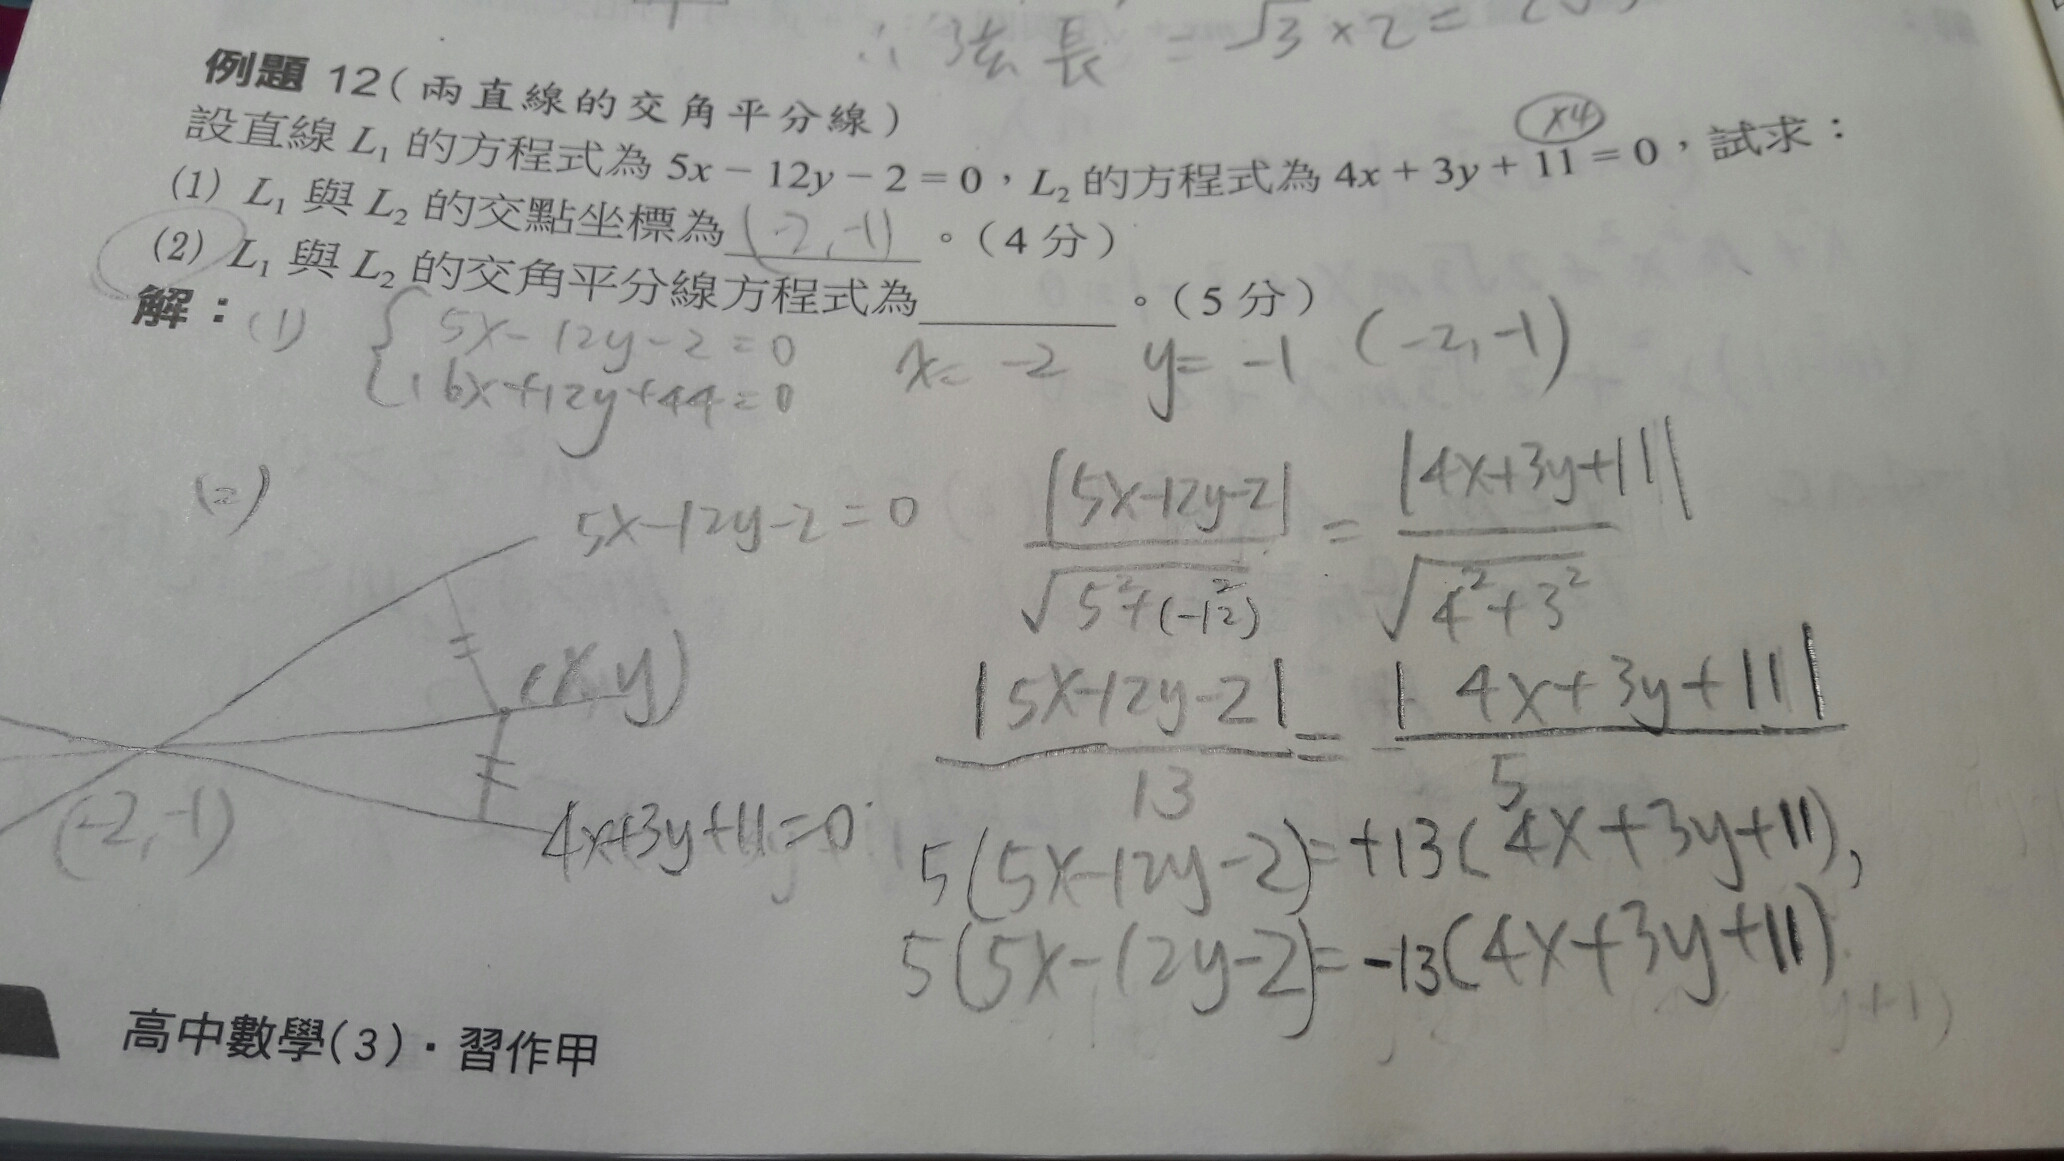 ∴弦長 = √3 × 2 = 2√3
例題 12(兩直線的交角平分線)
×4
設直線 L₁ 的方程式為 5x − 12y − 2 = 0,L₂ 的方程式為 4x + 3y + 11 = 0,試求:
(1) L₁ 與 L₂ 的交點坐標為 (-2,-1) 。(4 分)
(2) L₁ 與 L₂ 的交角平分線方程式為______。(5 分)
解:(1) { 5x-12y-2=0
16x+12y+44=0
x= -2 y= -1 (-2,-1)
(2)
5x-12y-2=0
(x,y)
(-2,-1)
4x+3y+11=0
|5x-12y-2| / √5²+(-12)² = |4x+3y+11| / √4²+3²
|5x-12y-2| / 13 = |4x+3y+11| / 5
5(5x-12y-2)=+13(4x+3y+11),
5(5x-12y-2)=-13(4x+3y+11)
y+1)
高中數學(3)・習作甲